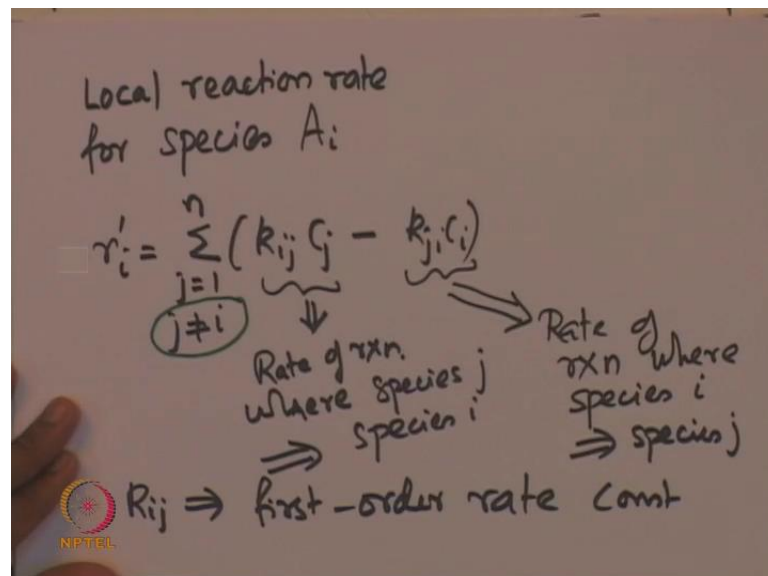 Local reaction rate
for species Ai
r'i = n Σ j=1 j≠i (kij Cj - kji Ci)
⇓
Rate of rxn.
where species j
⇒ species i
Rate of
rxn where
species i
⇒ species j
kij ⇒ first-order rate const
NPTEL